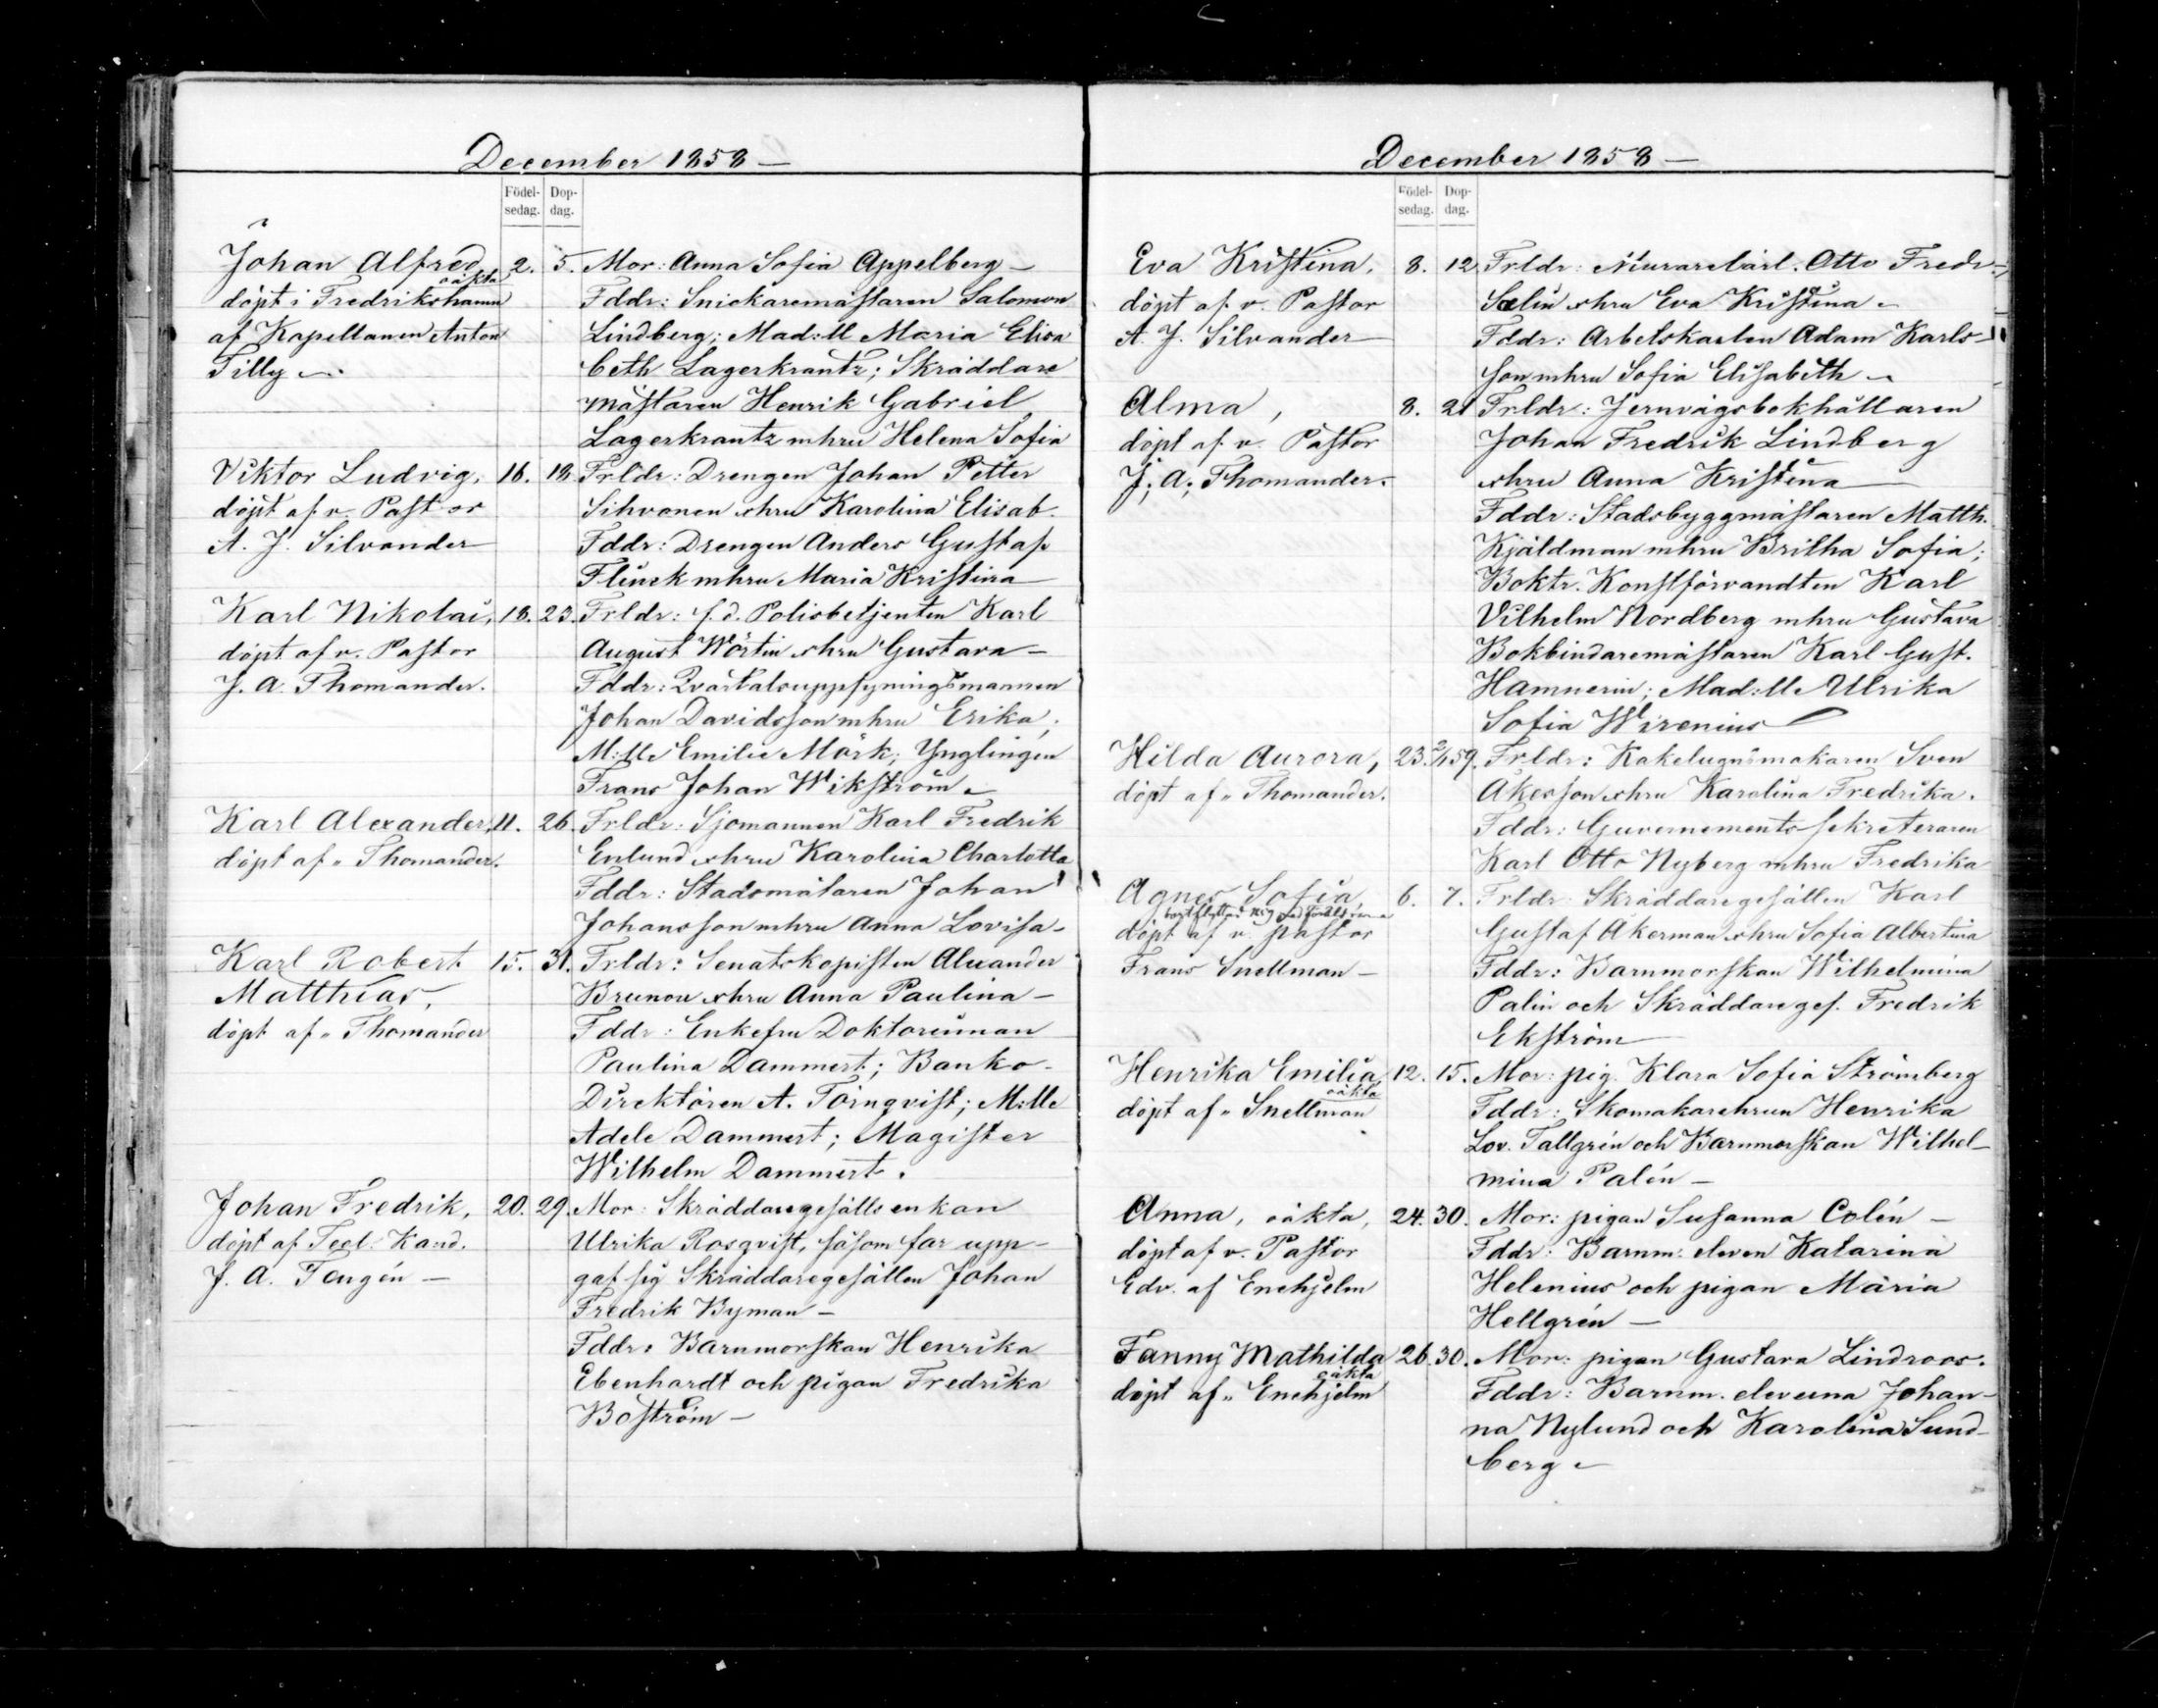 December 1858 —
Födel- Dop-
sedag. dag.
Johan Alfred, 2. 5. Mor: Anna Sofia Appelberg —
oäkta
döpt i Fredrikshamn Fddr: Snickaremästaren Salomon
af Kapellanen Anton Lindberg; Mad:ll Maria Elisa
Tilly — beth Lagerkrantz; Skräddare
mästaren Henrik Gabriel
Lagerkrantz mhru Helena Sofia
Viktor Ludvig, 16. 18. Frldr: Drengen Johan Petter
döpt af v. Pastor Sihvonen o hru Karolina Elisab.
A. J. Silvander Fddr: Drengen Anders Gustaf
Flinck mhru Maria Kristina
Karl Nikolai, 18. 23. Frldr: f. d. Polisbetjenten Karl
döpt af v. Pastor August Wörtin o hru Gustava —
J. A. Thomander. Fddr: Qvartalsuppsyningsmannen
Johan Davidsson mhru Erika;
M:lle Emilie Mörk; Ynglingen
Frans Johan Wikström —
Karl Alexander, 11. 26. Frldr: Sjömannen Karl Fredrik
döpt af „ Thomander. Enlund o hru Karolina Charlotta
Fddr: Stadsmätaren Johan
Johansson mhru Anna Lovisa —
Karl Robert 15. 31. Frldr: Senatskopisten Alexander
Matthias, Brunou o hru Anna Paulina —
döpt af „ Thomander Fddr: Enkefru Doktorinnan
Paulina Dammert; Banko-
Direktören A. Törnqvist; M:lle
Adele Dammert; Magister
Wilhelm Dammert.
Johan Fredrik, 20. 29. Mor: Skräddaregesälls enkan
döpt af Teol. Kand. Ulrika Rosqvist, såsom far upp-
J. A. Tengén — gaf sig Skräddaregesällen Johan
Fredrik Byman —
Fddr: Barnmorskan Henrika
Ebenhardt och pigan Fredrika
Boström —
December 1858 —
Födel- Dop-
sedag. dag.
Eva Kristina, 8. 12. Frldr: Murarelärl. Otto Fredr.
döpt af v. Pastor Selin o hru Eva Kristina —
A. J. Silvander Fddr: Arbetskarlen Adam Karls-
son mhru Sofia Elisabeth —
Alma, 8. 21 Frldr: Jernvågsbokhållaren
döpt af v. Pastor Johan Fredrik Lindberg
J. A. Thomander. o hru Anna Kristina
Fddr: Stadsbyggmästaren Matth.
Kjäldman mhru Britha Sofia;
Boktr. Konstförvandten Karl
Vilhelm Nordberg mhru Gustava
Bokbindaremästaren Karl Gust.
Hamnerin; Mad:lle Ulrika
Sofia Wirenius
Hilda Aurora, 23. 2/1 59. Frldr: Kakelugnsmakaren Sven
döpt af „ Thomander. Åkesson o hru Karolina Fredrika.
Fddr: Guvernements-sekreteraren
Karl Otto Nyberg mhru Fredrika
Agnes Sofia, 6. 7. Frldr: Skräddaregesällen Karl
döpt af v. pastor Gustaf Åkerman o hru Sofia Albertina
Frans Snellman — Fddr: Barnmorskan Wilhelmina
Palin och Skräddareges. Fredrik
Ekström
Henrika Emilia, 12. 15. Mor: pig. Klara Sofia Strömberg
oäkta
döpt af „ Snellman Fddr: Skomakarehrun Henrika
Lov. Tallgrén och Barnmorskan Wilhel-
mina Palén —
Anna, oäkta, 24. 30. Mor: pigan Susanna Colén —
döpt af v. Pastor Fddr: Barnm: eleven Katarina
Edv. af Enehjelm Helenius och pigan Maria
Hellgrén —
Fanny Mathilda 26. 30. Mor: pigan Gustava Lindroos.
oäkta
döpt af „ Enehjelm Fddr: Barnm. eleverna Johan-
na Nylund och Karolina Sund-
berg —